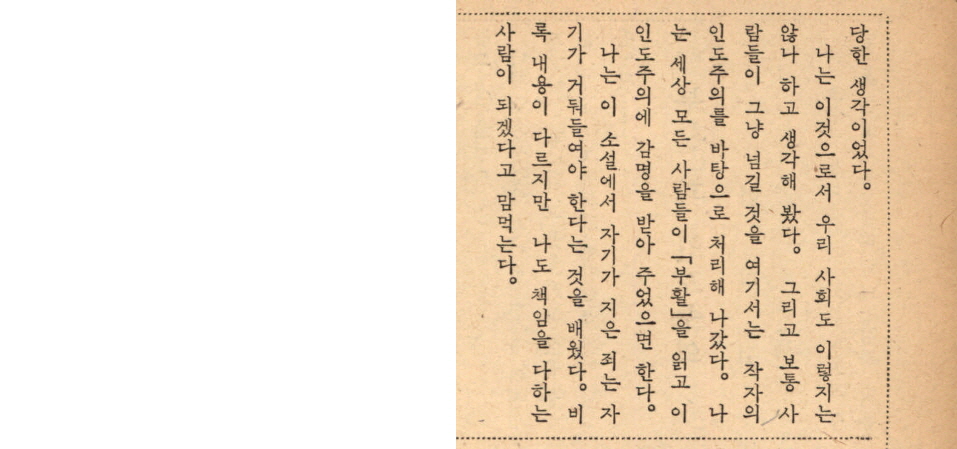 당한 생각이었다。
나는 이것으로서 우리 사회도 이렇지는
않나 하고 생각해 봤다。 그리고 보통 사
람들이 그냥 넘길 것을 여기서는 작자의
인도주의를 바탕으로 처리해 나갔다。 나
는 세상 모든 사람들이 「부활」을 읽고 이
인도주의에 감명을 받아 주었으면 한다。
나는 이 소설에서 자기가 지은 죄는 자
기가 거둬들여야 한다는 것을 배웠다。 비
록 내용이 다르지만 나도 책임을 다하는
사람이 되겠다고 맘먹는다。